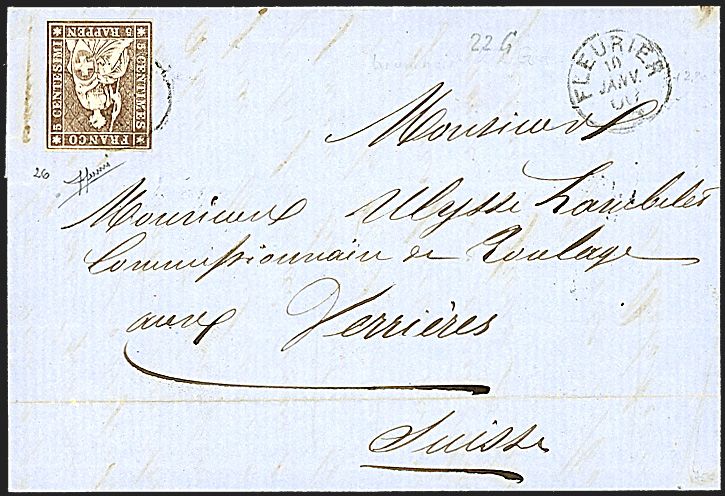 FRANCO
5 RAPPEN 5
5 CENTIMES
5 CENTESIMI
22 G
FLEURIER
10
JANV.
26
Monsieur
Monsieur Ulysse
Commissionnaire de Roulage
aux Verrières
Suisse